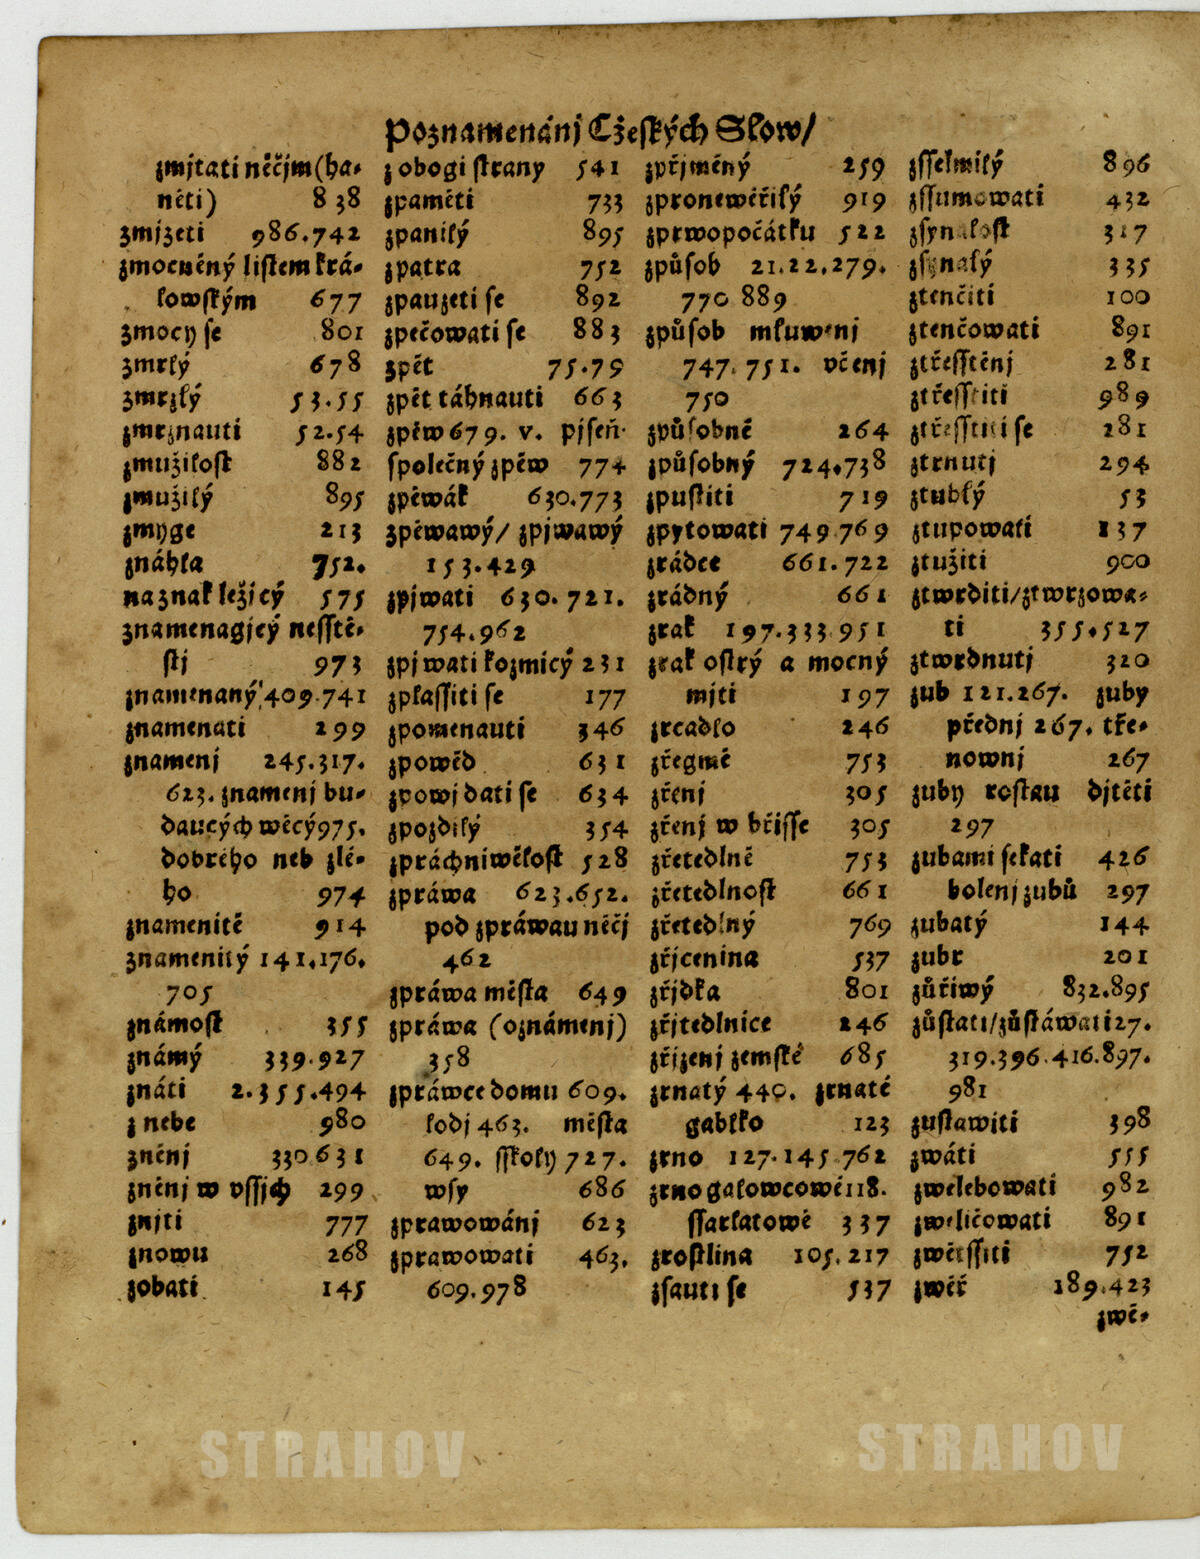 Poznamenánj Cžeských Slow/
zmjtati něčjm (ha-
něti) 838
zmjzeti 986.742
zmocněný listem krá-
lowským 677
zmocy se 801
zmrlý 678
zmrzlý 53.55
zmrznauti 52.54
zmužilost 882
zmužilý 895
zmyge 213
znáhla 752.
na znak ležjcý 575
znamenagjcý nesstě-
stj 973
znamenaný 409.741
znamenati 299
znamenj 245.317.
623. znamenj bu-
daucých wěcý 975.
dobrého neb zlé-
ho 974
znamenitě 914
znamenitý 141.176.
705
známost 355
známý 339.927
znáti 2.355.494
z nebe 980
zněnj 330 631
zněnj w vssjch 299
znjti 777
znowu 268
zobati 145
z obogi strany 541
zpaměti 733
zpanilý 895
zpatra 752
zpauzeti se 892
zpečowati se 883
zpět 75.79
zpět táhnauti 663
zpěw 679. v. pjseň.
společný zpěw 774
zpěwák 630.773
zpěwawý/ zpjwawý
153.429
zpjwati 630.721.
754.962
zpjwati kozmicý 231
zplassiti se 177
zpomenauti 346
zpowěd 631
zpowjdati se 634
zpozdilý 354
zpráchniwělost 528
zpráwa 623.652.
pod zpráwau něčj
462
zpráwa města 649
zpráwa (oznámenj)
358
zpráwce domu 609.
lodj 463. města
649. sskoly 727.
wsy 686
zprawowánj 623
zprawowati 463.
609.978
zpřjměný 259
zproněwěřilý 919
zprwopočátku 522
způsob 21.22.279.
770 889
způsob mluwenj
747.751. včenj
750
způsobně 264
způsobný 724.738
zpustiti 719
zpytowati 749.769
zrádce 661.722
zrádný 661
zrak 197.333.951
zrak ostrý a mocný
mjti 197
zrcadlo 246
zřegmě 753
zřenj 305
zřenj w břisse 305
zřetedlně 753
zřetedlnost 661
zřetedlný 769
zřjcenina 537
zřjdka 801
zřjtedlnice 246
zřjzenj zemské 685
zrnatý 440. zrnaté
gablko 123
zrno 127.145.762
zrno galowcowé 118.
ssarlatowé 337
zrostlina 105.217
zsauti se 537
zsselmilý 896
zssumowati 432
zsynalost 317
zsynalý 335
ztenčiti 100
ztenčowati 891
ztřesstěnj 281
ztřesstiti 989
ztřesstiti se 281
ztrnutj 294
ztuhlý 53
ztupowati 137
ztužiti 900
ztwrditi/ztwrzowa-
ti 355.527
ztwrdnutj 320
zub 121.267. zuby
přednj 267. tře-
nownj 267
zuby rostau djtěti
297
zubami sekati 426
bolenj zubů 297
zubatý 144
zubr 201
zůřiwý 832.895
zůstati/zůstáwati 27.
319.396.416.897.
981
zustawiti 398
zwáti 555
zwelebowati 982
zweličowati 891
zwětssiti 752
zwěř 189.423
zwě-
STRAHOV STRAHOV